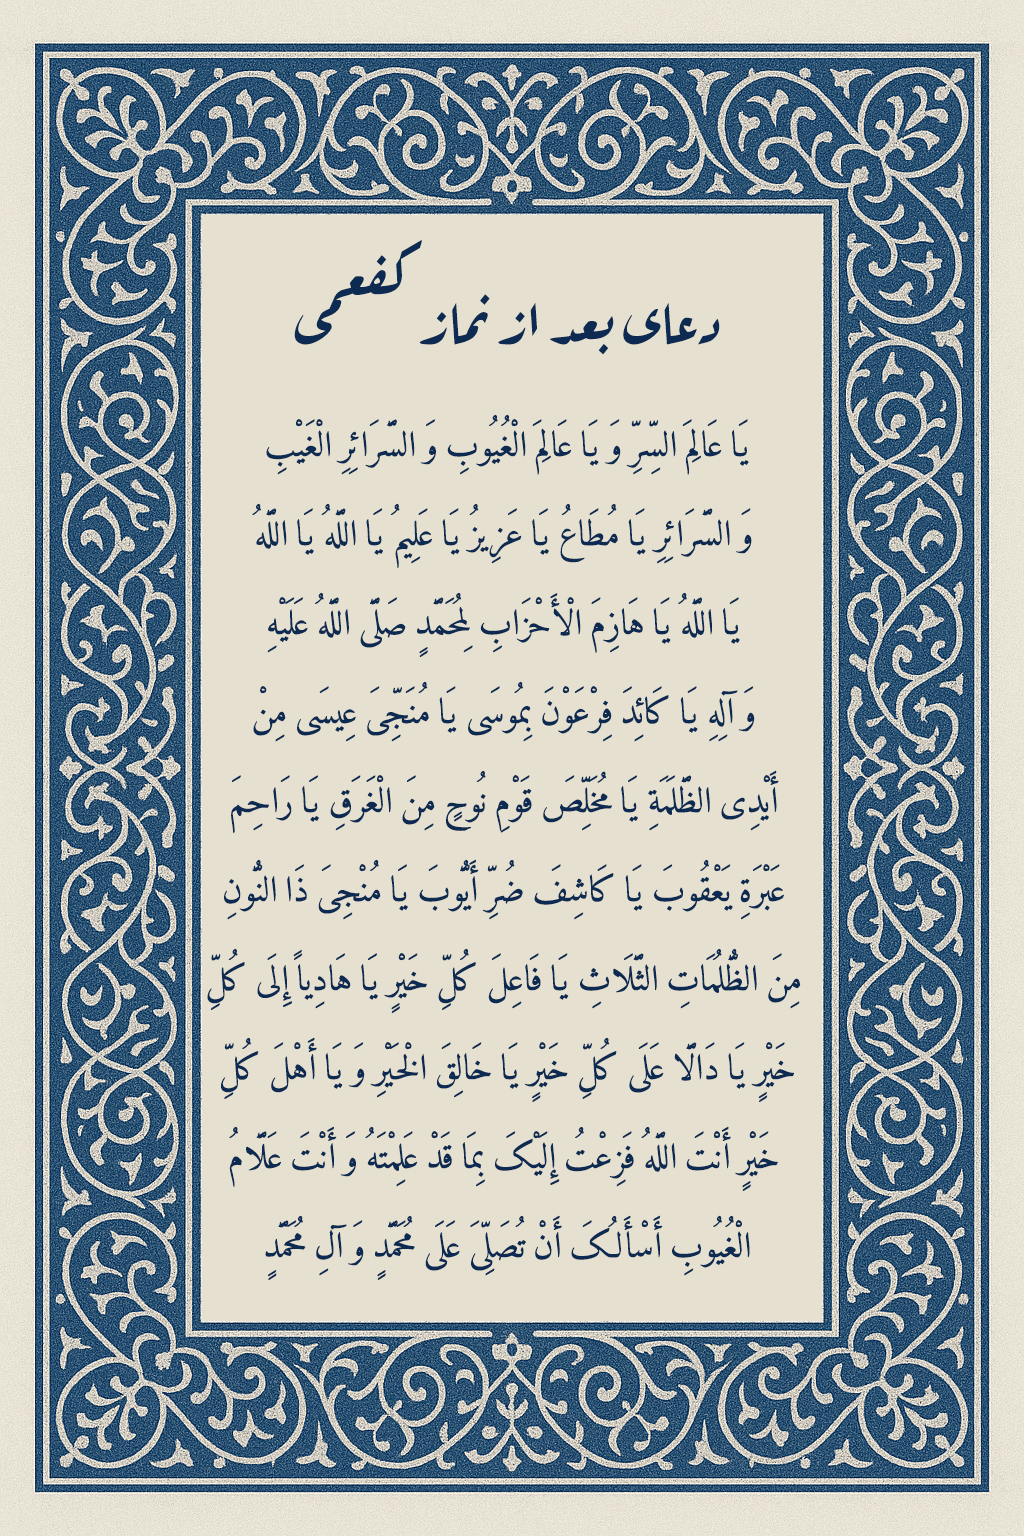 دعای بعد از نماز کفعمی
يَا عَالِمَ السِّرِّ وَ يَا عَالِمَ الْغُيُوبِ وَ السَّرَائِرِ الْغَيْبِ
وَ السَّرَائِرِ يَا مُطَاعُ يَا عَزِيزُ يَا عَلِيمُ يَا اللَّهُ يَا اللَّهُ
يَا اللَّهُ يَا هَازِمَ الْأَحْزَابِ لِمُحَمَّدٍ صَلَّى اللَّهُ عَلَيْهِ
وَ آلِهِ يَا كَائِدَ فِرْعَوْنَ بِمُوسَى يَا مُنَجِّىَ عِيسَى مِنْ
أَيْدِى الظَّلَمَةِ يَا مُخَلِّصَ قَوْمِ نُوحٍ مِنَ الْغَرَقِ يَا رَاحِمَ
عَبْرَةِ يَعْقُوبَ يَا كَاشِفَ ضُرِّ أَيُّوبَ يَا مُنْجِىَ ذَا النُّونِ
مِنَ الظُّلُمَاتِ الثَّلَاثِ يَا فَاعِلَ كُلِّ خَيْرٍ يَا هَادِياً إِلَى كُلِّ
خَيْرٍ يَا دَالًّا عَلَى كُلِّ خَيْرٍ يَا خَالِقَ الْخَيْرِ وَ يَا أَهْلَ كُلِّ
خَيْرٍ أَنْتَ اللَّهُ فَزِعْتُ إِلَيْکَ بِمَا قَدْ عَلِمْتَهُ وَ أَنْتَ عَلَّامُ
الْغُيُوبِ أَسْأَلُکَ أَنْ تُصَلِّىَ عَلَى مُحَمَّدٍ وَ آلِ مُحَمَّدٍ